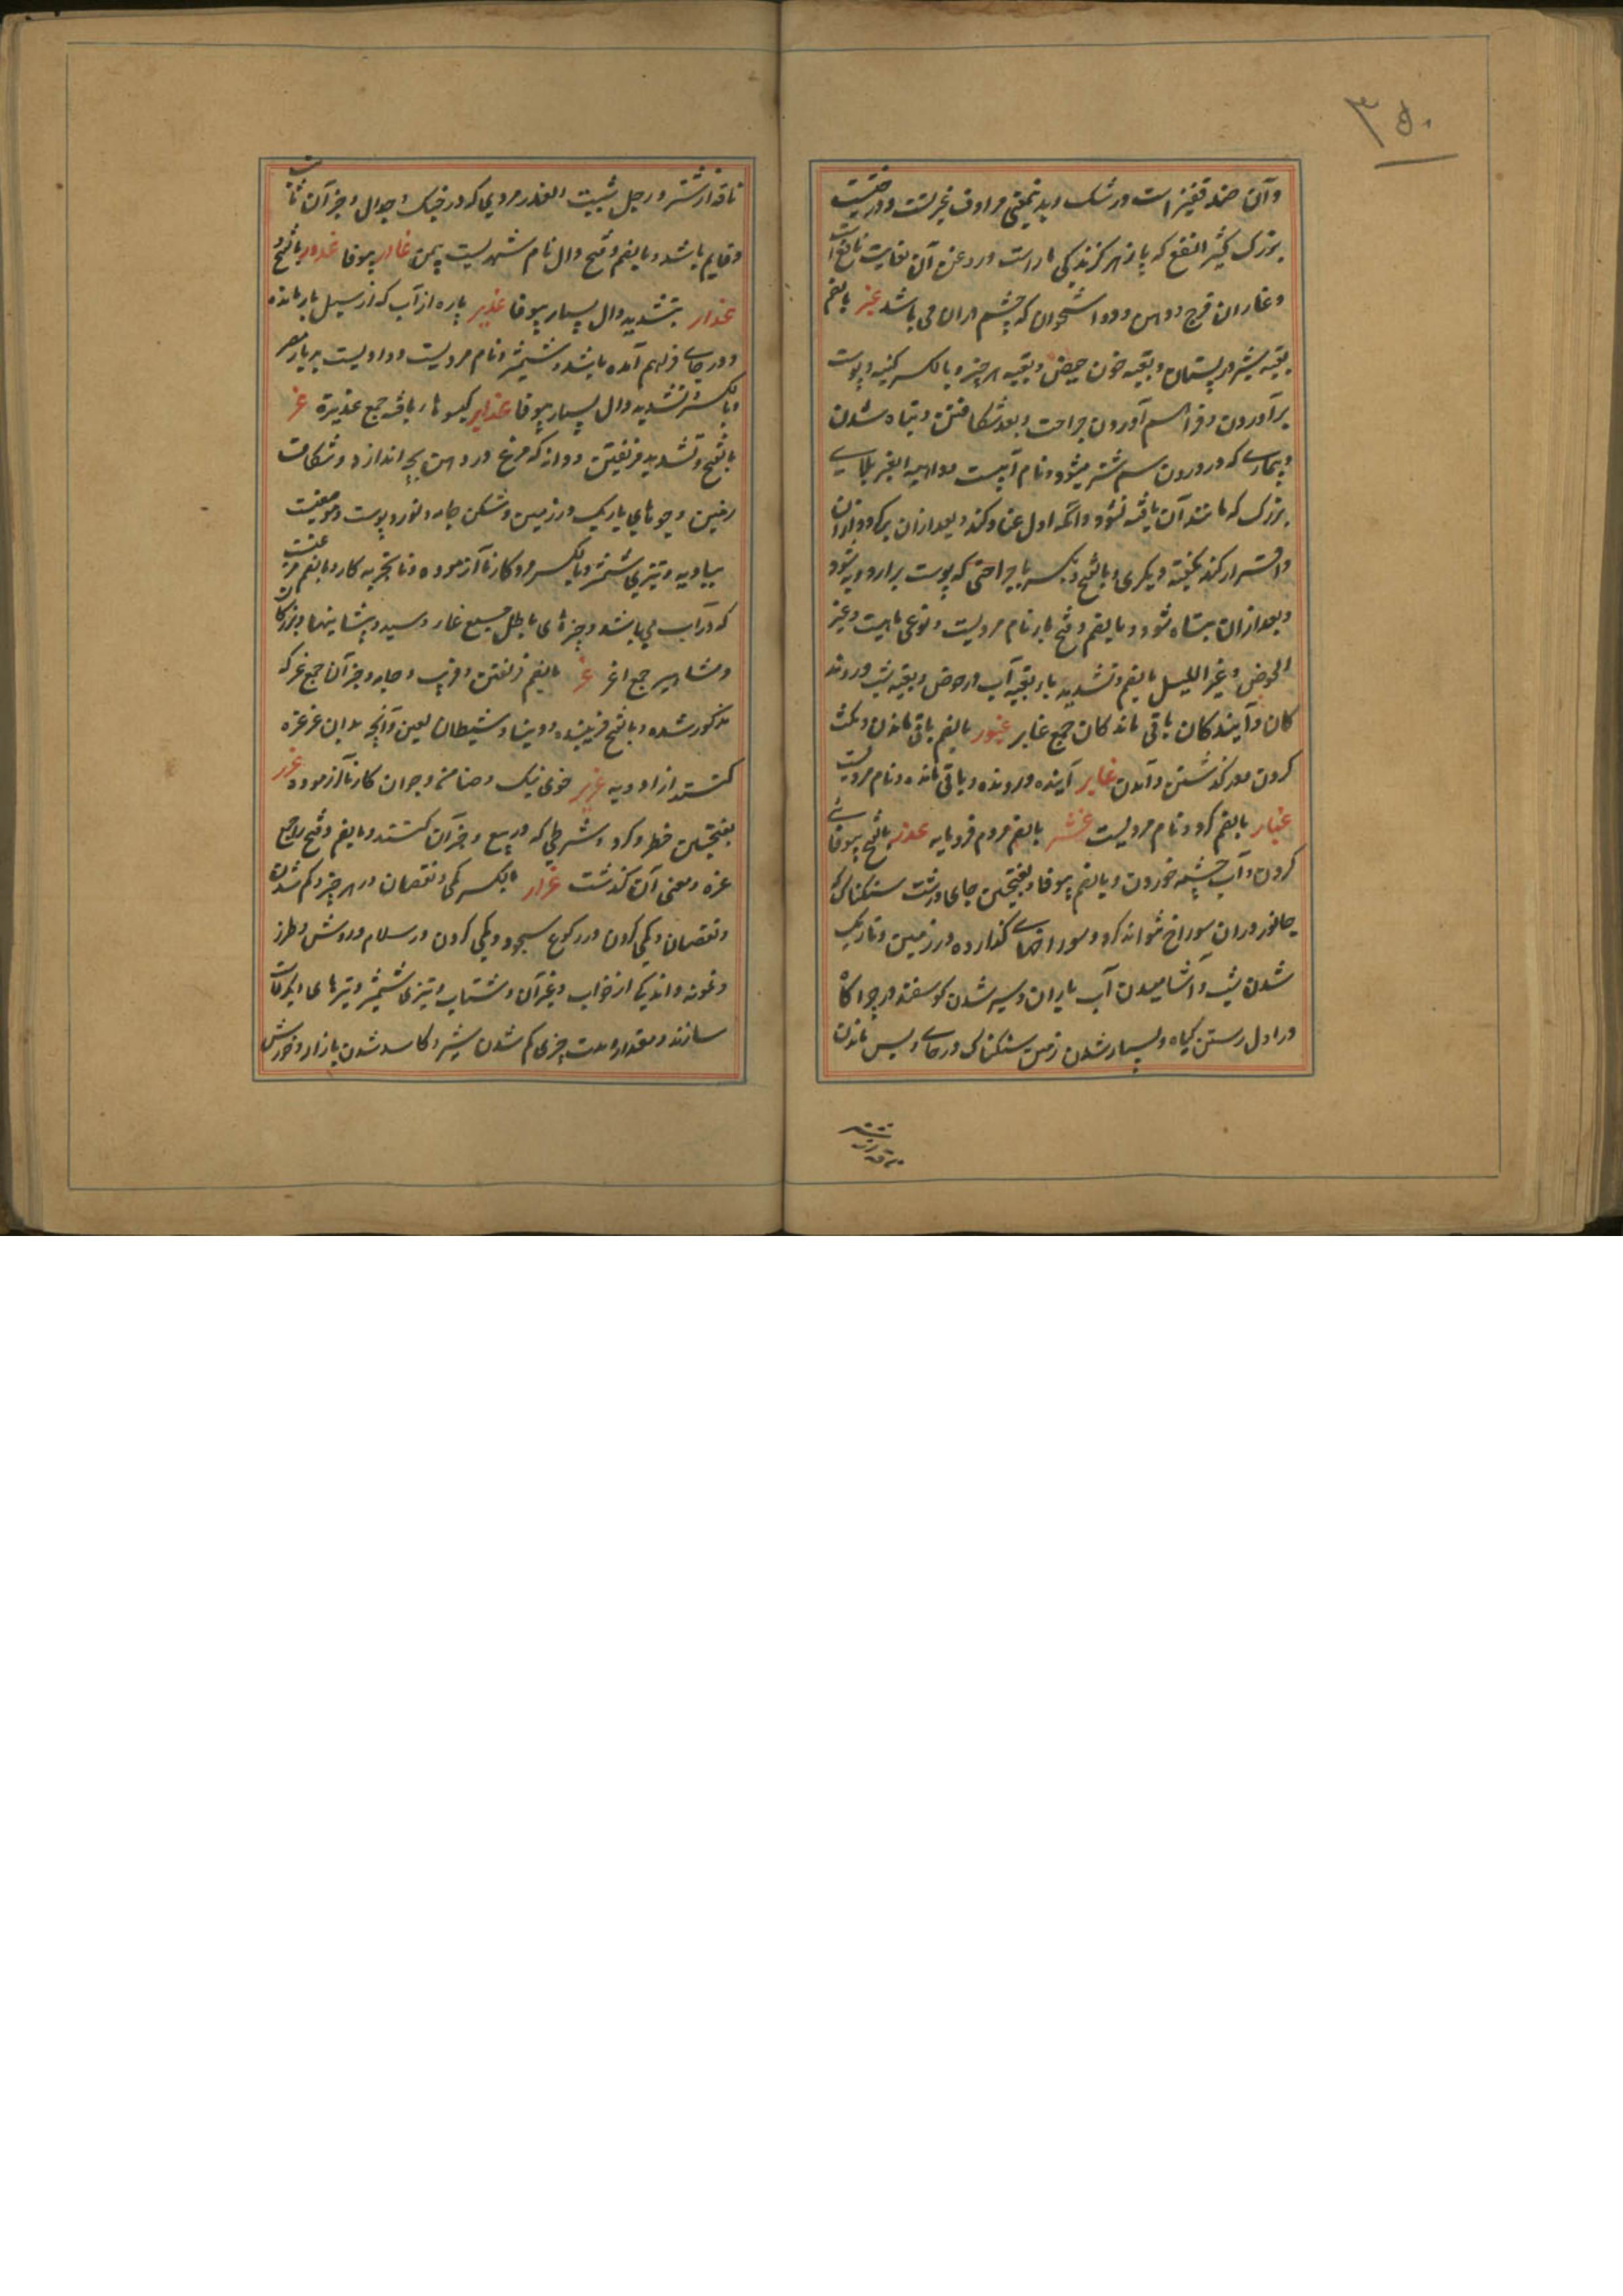 ۳۵۰
وآن صد قفیز است و رشک و بدینمعنی مرادف غیرتست و درختیست
بزرک کثیر النفع که پازهر کزندکی مار است و روغن آن بغایت نافع است
و غاران فرج و دهن و دو استخوان که چشم دران می باشد غبر بالضم
بقیه شیر در پستان و بقیه خون حیض و بقیه هر چیز و بالکسر کینه و پوست
برآوردن و فراهم آوردن جراحت و بعد شکافتن و تباه شدن
و بیماری که در درون سم شتر میشود و نام آبیست و داهیة الغبر بلای
بزرک که مانند آن یافته نشود و آنکه اول عناد کند و بعد ازان
و اقرار کند بکفته دیکری و بالفتح و بکسر با جراحتی که پوست برارد و به شود
و بعد ازان تباه شود و بالضم و فتح با نام مردیست و نوعی ماهیست و غبر
الحوض و غبر اللیل بالضم و تشدید با بقیه آب در حوض و بقیه شب و روند
کان و آیندکان باقی ماندکان جمع غابر غبور بالضم باقی ماندن و مکث
کردن و درکذشتن و آمدن غابر آینده و رونده و باقی مانده و نام مردیست
غبار بالضم کرد و نام مردیست غثر بالضم مردم فرومایه غدر بالفتح بیوفائی
کردن و آب چشمه خوردن و بالضم بیوفا و بفتحتین جای درشت سنکناک که
جانور دران سوراخ تواند کرد و سوراخهای کنداروه در زمین و تاریک
شدن شب و آشامیدن آب باران و سیر شدن کوسفند در چراکاه
در اول رستن کیاه و بسیار شدن زمین سنکناک در جای و پس ماندن
ناقه از شتر
ناقه از شتر و رجل ثبیت الغدر مردی که در جنک و جدال و جز آن ثابت
و قایم باشد و بالضم و فتح دال نام شهریست بیمن غادر بیوفا غدور بالفتح و
غدار بتشدید دال بسیار بیوفا غدیر پاره از آب که از سیل باز مانده
و در جای فراهم آمده باشد و شمشیر و نام مردیست و وادیست بدیار مضر
و بالکسر و تشدید دال بسیار بیوفا غدایر کیسوهای بافته جمع غدیره غر
بالفتح و تشدید فریفتن و دانه که مرغ در دهن بچه اندازد و شکاف
زمین و جویهای باریک در زمین و شکن جامه و نورد پوست و موضعیست
ببادیه و تیزی شمشیر و بالکسر مرد کار ناآزموده و ناتجربه کار و بالضم مرغیست
که در آب می باشد و چیزهای باطل جمع غار و سپید پیشانیها و بزرکان
و مشاهیر جمع اغر غر بالضم فریفتن و فریب و جامه و جز آن جمع غر که
مذکور شده و بالفتح فریبنده و دنیا و شیطان لعین و آنچه بدان غرغره
کنند از ادویه غریر خوی نیک و ضامن و جوان کار ناآزموده غرر
بفتحتین خطر و کرو و شرطی که در بیع و جز آن کنند و بالضم و فتح را جمع
غره و معنی آن کذشت غرار بالکسر کمی و نقصان در هر چیز و کم شدن
و نقصان و کمی کردن در رکوع و سجود و کمی کردن در سلام و روش و طرز
و نمونه و اندک از خواب و غیر آن و شتاب و تیزی شمشیر و تیرهای
سازند و مقدار و مدت چیزی کم شدن شیر و کاسد شدن بازار و خورش